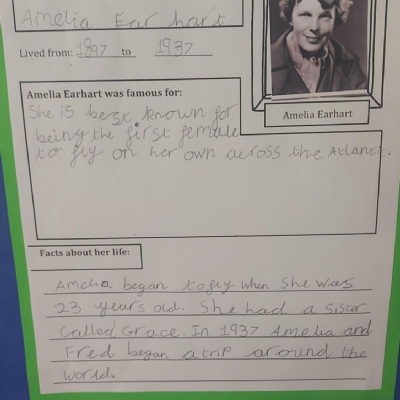 Amelia Earhart
Lived from: 1897 to 1937
Amelia Earhart
Amelia Earhart was famous for:
She is best known for
being the first female
to fly on her own across the Atlantic.
Facts about her life:
Amelia began to fly when she was
23 years old. She had a sister
called Grace. In 1937 Amelia and
Fred began a trip around the
world.